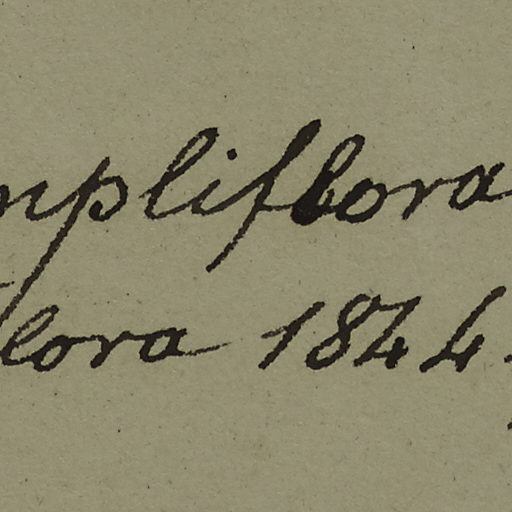 mpliflora
flora 1844.